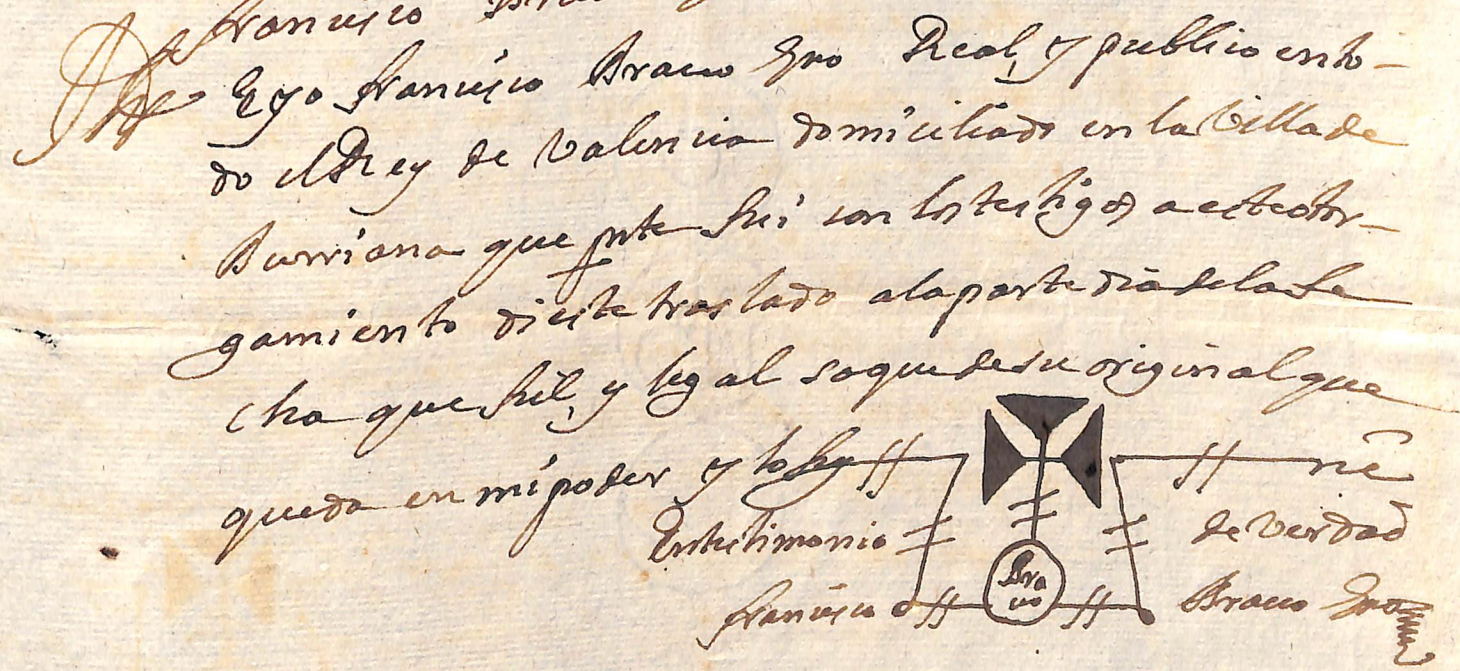 francisco
E yo francisco Bravo Sno Real, y publico ento-
do el Rey de Valencia domiciliado en la Villa de
Burriana que pnte fui con los testigos a este otor-
gamiento di este traslado a la parte dia de la fe
cha que fiel, y legal saque de su original que
queda en mi poder y lo signe
En testimonio de Verdad
Bra
vo
francisco Bravo Sno